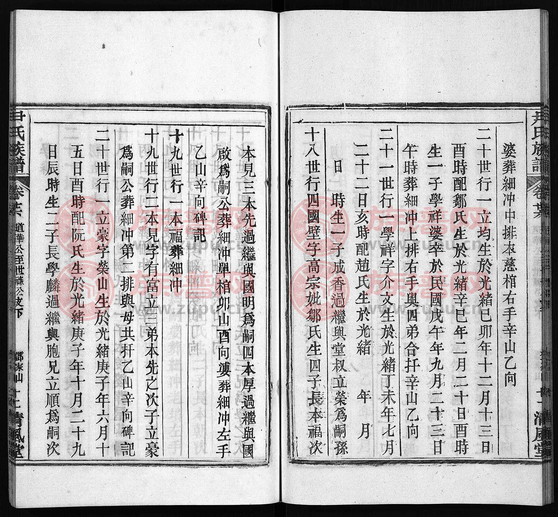 婆葬細冲中排本慈棺右手辛山乙向
二十世行一立均生於光緒己卯年十二月初三日
酉時配鄒氏生於光緒辛巳年二月二十日酉時
生一子學祥婆幸於民國戊午年九月二十三日
午時葬細冲上排右手與四弟合扦辛山乙向
二十一世行一學祥字介文生於光緒丁未年七月
二十二日亥時配趙氏生於光緒 年 月
日 時生一子成香過繼與堂叔立榮爲嗣孫
十八世行四國璧字高宗妣鄒氏生四子長本福次
本見三本先過繼與國明爲嗣四本厚過繼與國
啟爲嗣公葬細冲單棺卯山酉向婆葬細冲左手
乙山辛向碑記
十九世行一本福葬細冲
十九世行二本見字有富立三弟本先之次子立豪
爲嗣公葬細冲第二排與母共扦乙山辛向碑記
二十世行一立豪字榮山生於光緒庚子年六月十
五日酉時配阮氏生於光緒庚子年十月二十九
日辰時生二子長學麟過繼與胞兄立順爲嗣次
尹氏族譜
卷
鄧家山
清風堂